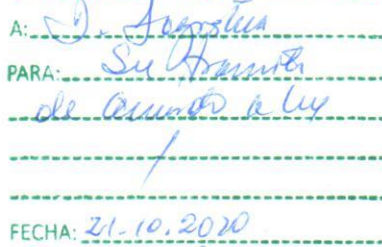 A: D.
PARA: Su tramite
de acuerdo a ley
/
FECHA: 21-10.2020